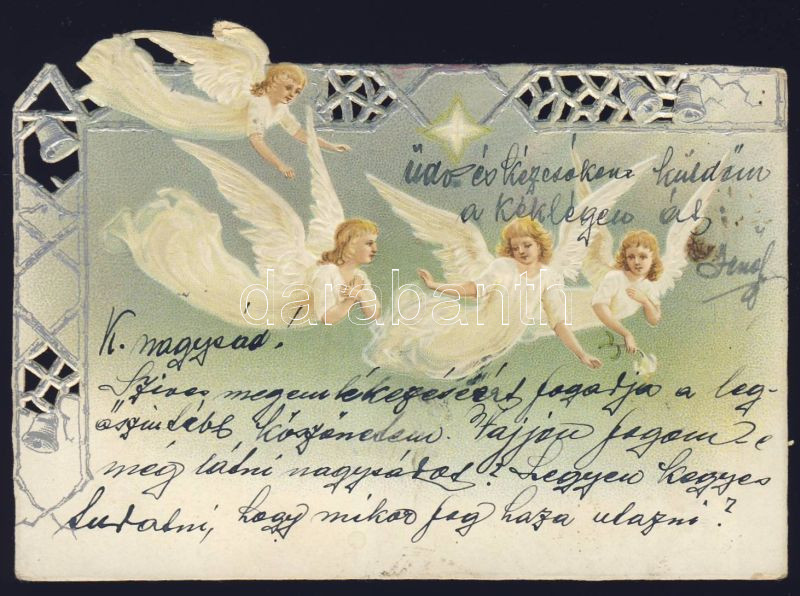 üdv és kézcsókom küldöm
a kéklégen át
K. nagysád!
Szives megemlékezéséért fogadja a leg-
őszintébb köszönetem. Vajjon fogom-e
még látni nagysádat? Legyen kegyes
tudatni, hogy mikor fog haza utazni?
darabanth